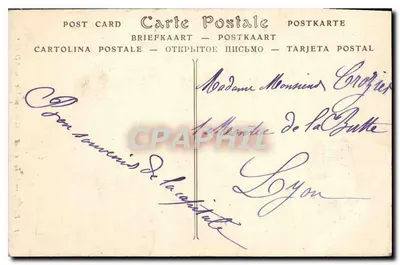 POST CARD Carte Postale POSTKARTE
BRIEFKAART - POSTKAART
CARTOLINA POSTALE - ОТКРЫТОЕ ПИСЬМО - TARJETA POSTAL
Bon souvenir de la capitale
Madame Monsieur Crozier
1 Montée de la Butte
Lyon
CPAPHIL